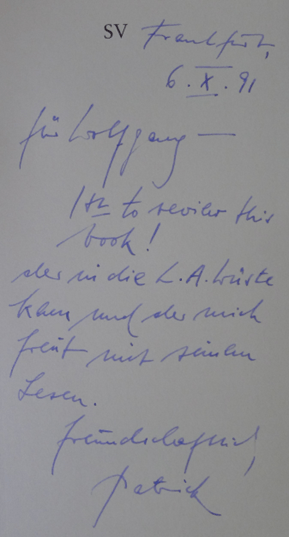 SV Frankfurt,
6. X. 91
für Wolfgang —
1st to review this
book!
der in die L.A. Wüste
kam und der mich
freut mit seinem
Lesen.
freundschaftlich,
Patrick